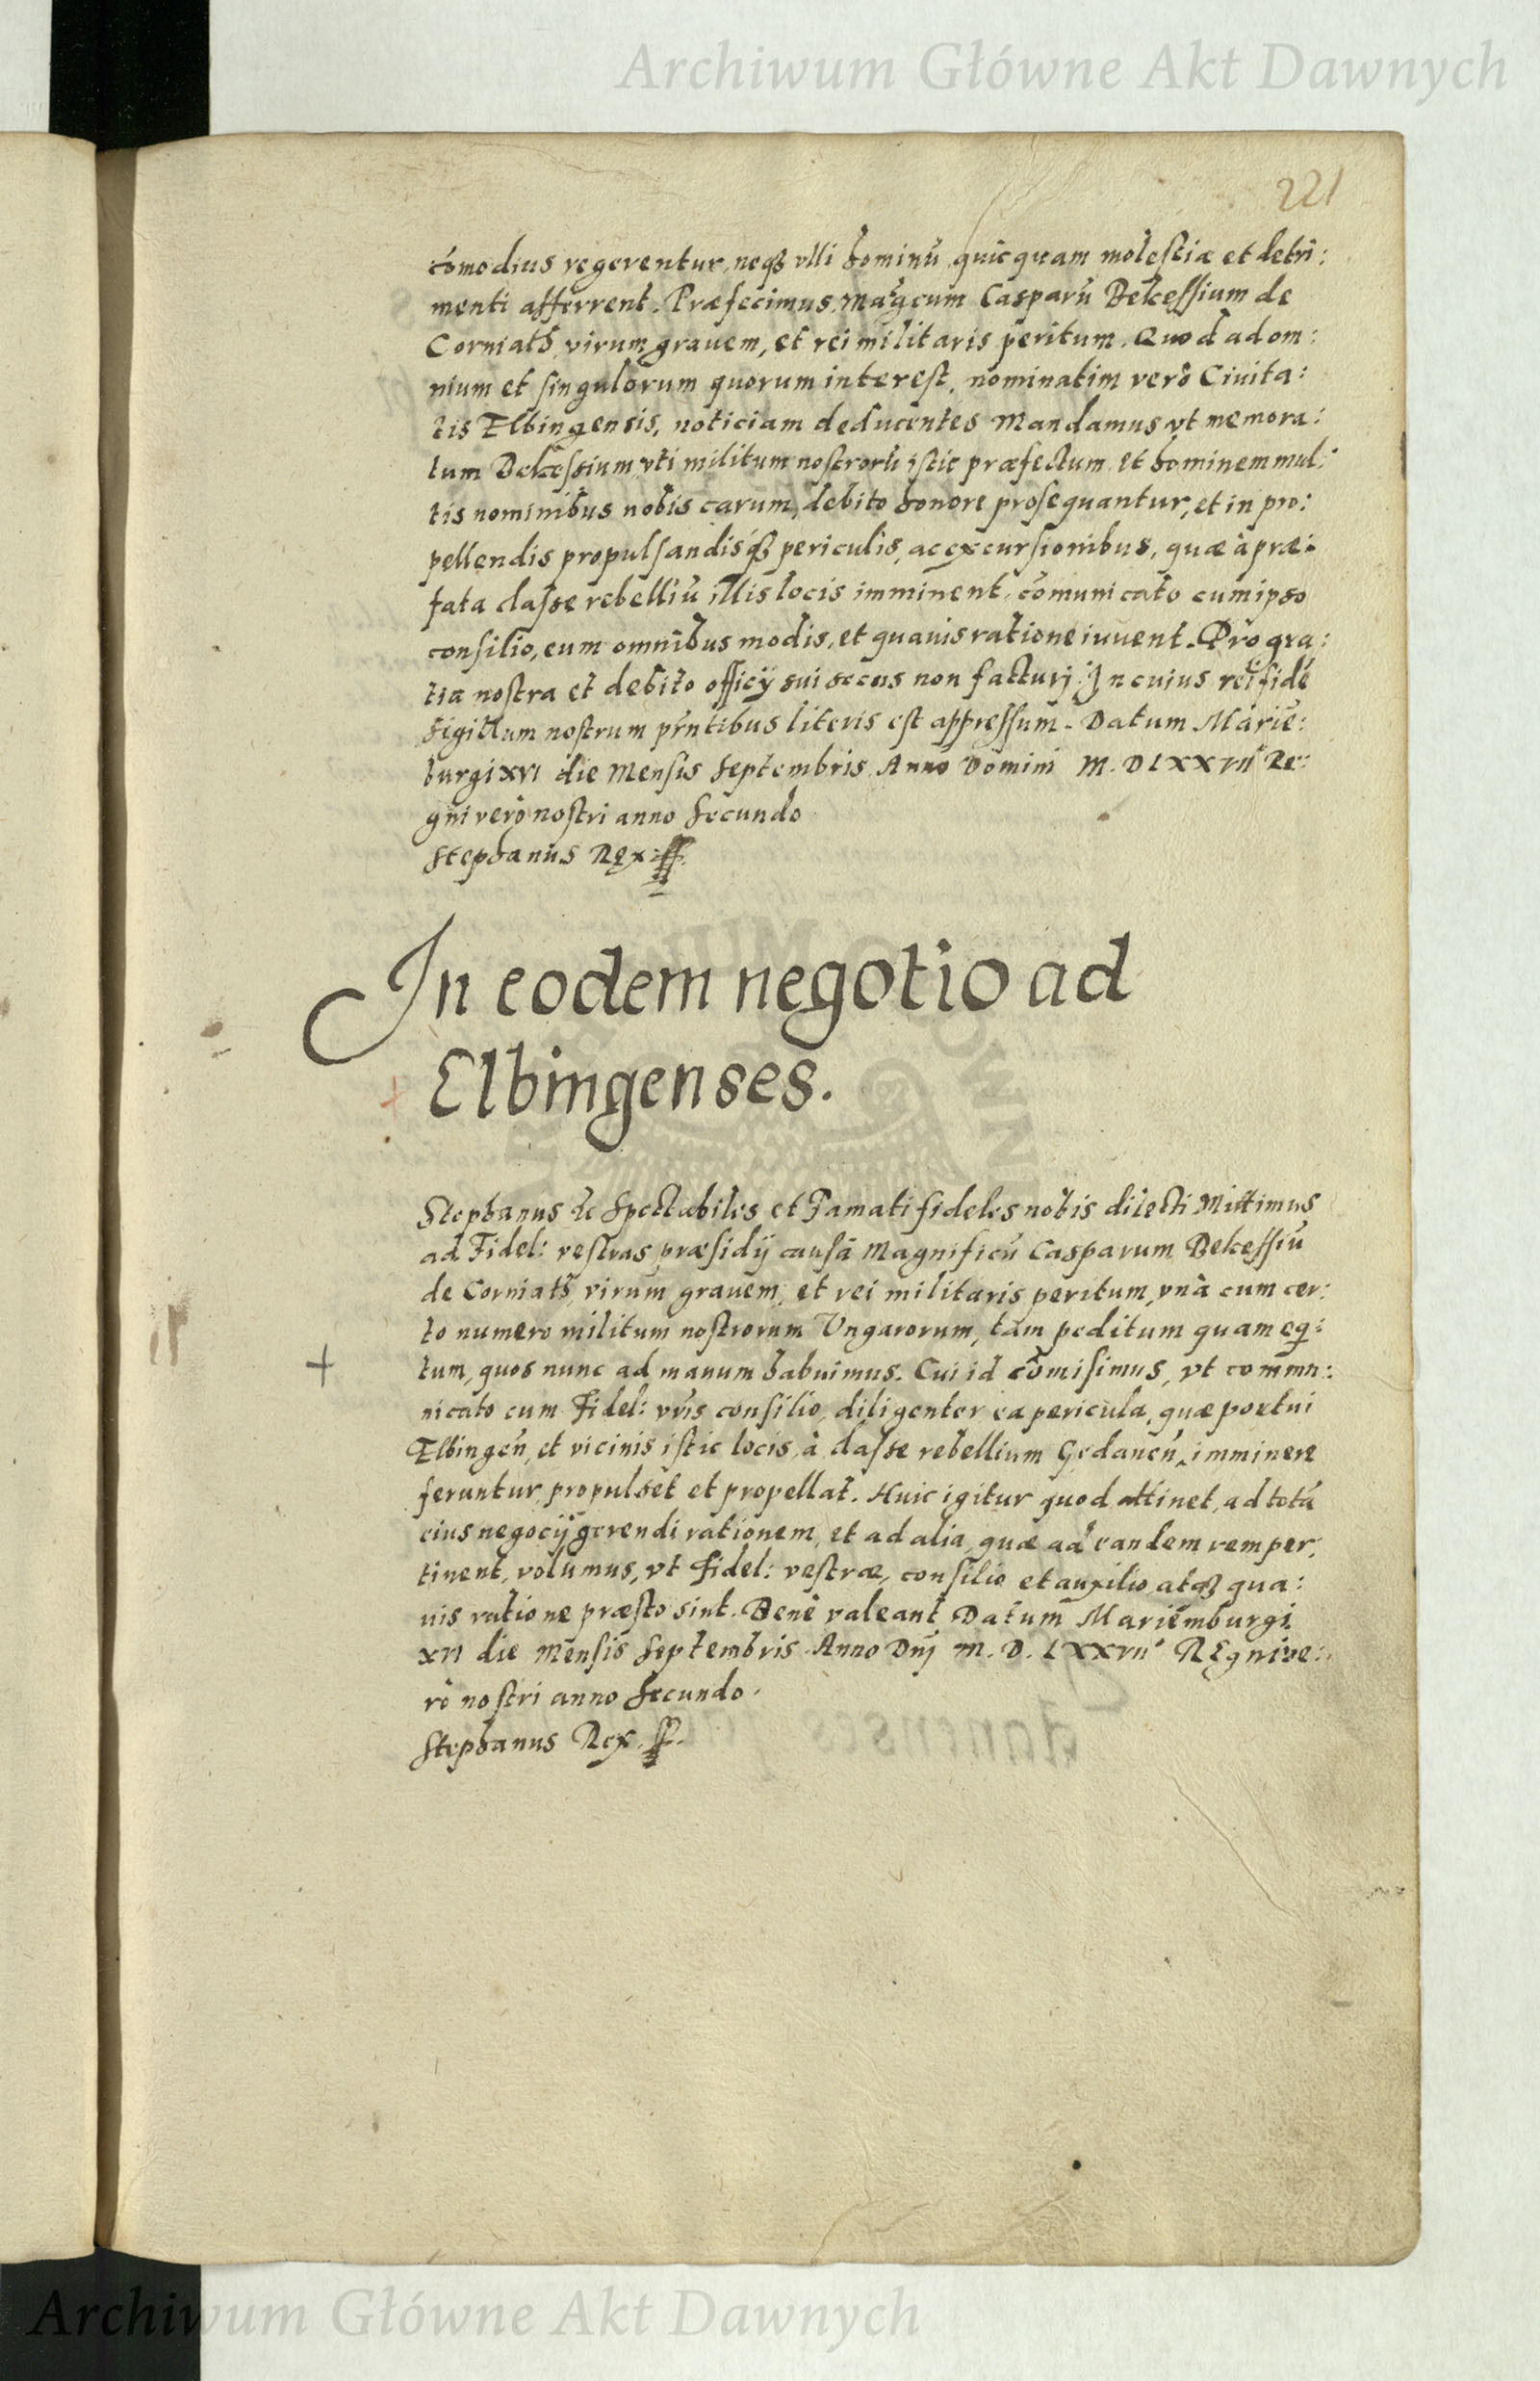 Archiwum Główne Akt Dawnych
221
cōmodius regerentur, neqꝫ vlli hominū quicquam molestiæ et detri:
menti afferrent. Præfecimus Magcum Casparū Bekessium de
Corniath, virum grauem, et rei militaris peritum. Quod ad om:
nium et singulorum quorum interest, nominatim verò Ciuita:
tis Elbingensis, noticiam deducentes Mandamus vt memora:
tum Bekessium, vti militum nostrorū istic præfectum et hominem mul:
tis nominibus nobis carum, debito honore prosequantur, et in pro:
pellendis propulsandisqꝫ periculis, ac excursionibus, quæ à præ:
fata classe rebelliū illis locis imminent, cōmunicato cum ipso
consilio, eum omnibus modis, et quauis ratione iuuent. Pro gra:
tia nostra et debito officÿ sui secus non facturj. In cuius rei fidē
Sigillum nostrum pn̄tibus literis est appressum. Datum Mariē:
burgi XVI die Mensis Septembris Anno Domini M. D LXXVII Re:
gni verò nostri anno Secundo
Stephanus Rex
In eodem negotio ad
Elbingenses.
Stephanus &c Spectabiles et Famati fideles nobis dilecti Mittimus
ad Fidel: vestras præsidÿ causā Magnificū Casparum Bekessiū
de Corniath, virum grauem, et rei militaris peritum, vnà cum cer:
to numero militum nostrorum Vngarorum, tam peditum quam eq:
tum, quos nunc ad manum habuimus. Cui id cōmisimus, vt commu:
nicato cum Fidel: vr̄is consilio, diligenter ea pericula, quæ portui
Elbingen̄, et vicinis istic locis, à classe rebellium Gedanen̄, imminere
feruntur, propulset et propellat. Huic igitur quod attinet, ad totā
eius negocÿ gerendi rationem, et ad alia, quæ ad eandem rem per:
tinent, volumus, vt Fidel: vestræ, consilio et auxilio atqꝫ qua:
uis ratione præsto sint. Benè valeant Datum Mariēmburgi
XVI die Mensis Septembris Anno Dnj M. D. LXXVII REgni ve:
rò nostri anno Secundo.
Stephanus Rex
Archiwum Główne Akt Dawnych